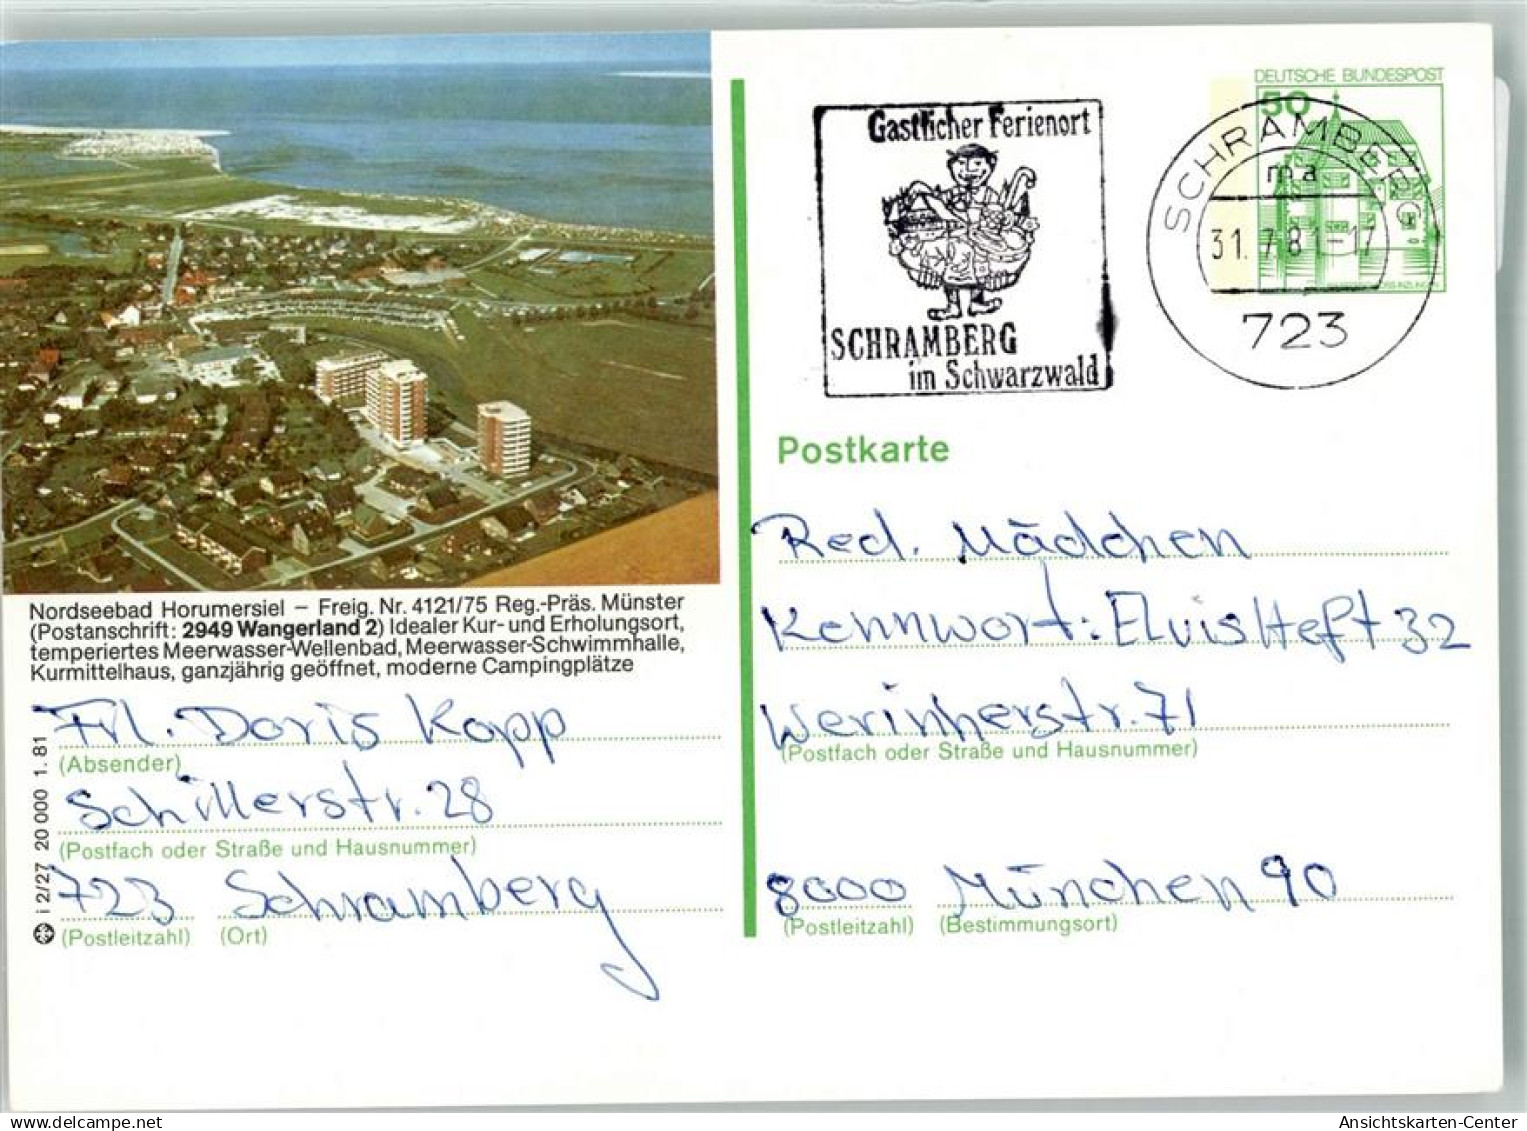 DEUTSCHE BUNDESPOST
50
Gastlicher Ferienort
SCHRAMBERG
im Schwarzwald
SCHRAMBERG
ma
31.7.81-17
723
Postkarte
Nordseebad Horumersiel – Freig. Nr. 4121/75 Reg.-Präs. Münster
(Postanschrift: 2949 Wangerland 2) Idealer Kur- und Erholungsort,
temperiertes Meerwasser-Wellenbad, Meerwasser-Schwimmhalle,
Kurmittelhaus, ganzjährig geöffnet, moderne Campingplätze
Frl. Doris Kopp
(Absender)
Schillerstr. 28
(Postfach oder Straße und Hausnummer)
723 Schramberg
(Postleitzahl) (Ort)
i 2/27 20 000 1. 81
Red. Mädchen
Kennwort: Elvis Heft 32
Werinherstr. 71
(Postfach oder Straße und Hausnummer)
8000 München 90
(Postleitzahl) (Bestimmungsort)
delcampe.net
Ansichtskarten-Center